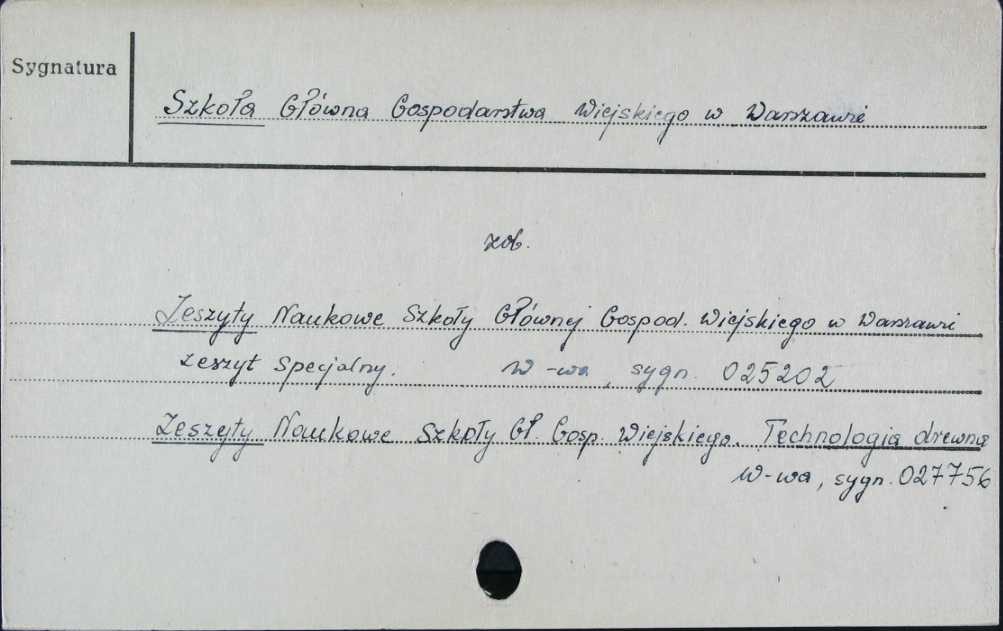 Sygnatura
Szkoła Główna Gospodarstwa Wiejskiego w Warszawie
zob.
Zeszyty Naukowe Szkoły Głównej Gospod. Wiejskiego w Warszawie
zeszyt specjalny. W-wa, sygn. 025202
Zeszyty Naukowe Szkoły Gł. Gosp. Wiejskiego. Technologia drewna
W-wa, sygn. 027756